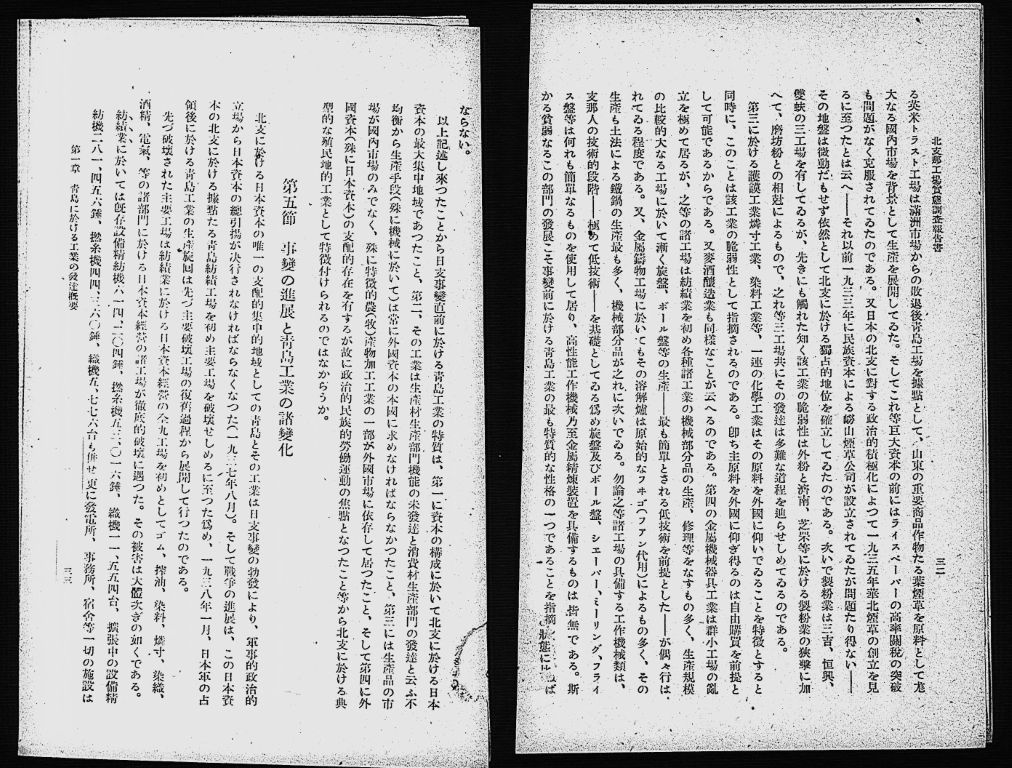 北支那工場實態調査報告書
三二
る英米トラスト工場は滿洲市場からの敗退後靑島工場を據點として、山東の重要商品作物たる葉煙草を原料として尨
大なる國內市場を背景として生產を展開してゐた。そしてこれ等巨大資本の前にはライスペーパーの高率關稅の突破
も問題がなく克服されてゐたのである。又日本の北支に對する政治的積極化によつて一九三五年華北煙草の創立を見
るに至つたとは云へ――それ以前一九三三年に民族資本による嶗山煙草公司が設立されてゐたが問題たり得ない――
その地盤は微動だもせず依然として北支に於ける獨占的地位を確立してゐたのである。次いで製粉業は三吉、恒興、
雙蚨の三工場を有してゐるが、先きにも觸れた如く該工業の脆弱性は外粉と濟南、芝罘等に於ける製粉業の狹擊に加
へて、磨坊粉との相尅によるもので、之れ等三工場共にその發達は多難な道程を辿らせしめてゐるのである。
第三に於ける護謨工業燐寸工業、染料工業等、一連の化學工業はその原料を外國に仰いでゐることを特徵とすると
同時に、このことは該工業の脆弱性として指摘されるのである。卽ち主原料を外國に仰ぎ得るのは自由購買を前提と
して可能であるからである。又麥酒釀造業も同樣なことが云へるのである。第四の金屬機械器具工業は群小工場の亂
立を極めて居るが、之等の諸工場は紡績業を初め各種諸工業の機械部分品の生產、修理等をなすもの多く、生產規模
の比較的大なる工場に於いて漸く旋盤、ボール盤等の生產――最も簡單とされる低技術を前提とした――が偶々行は
れてゐる程度である。又、金屬鑄物工場に於いてもその溶解爐は原始的なフヰゴ(ファン代用)によるもの多く、その
生產も土法による鐵鍋の生產最も多く、機械部分品が之れに次いでゐる。勿論之等諸工場の具備する工作機械類は、
支那人の技術的段階――極めて低技術――を基礎としてゐる爲め旋盤及びボール盤、シエーパー、ミーリング、フライ
ス盤等は何れも簡單なるものを使用して居り、高性能工作機械乃至金屬精煉裝置を具備するものは皆無である。斯
かる貧弱なるこの部門の發展こそ事變前に於ける靑島工業の最も特質的な性格の一つであることを指摘
ならない。
以上記述し來つたことから日支事變直前に於ける靑島工業の特質は、第一に資本の構成に於いて北支に於ける日本
資本の最大集中地域であつたこと、第二、その工業は生產材生產部門機能の未發達と消費材生產部門の發達と云ふ不
均衡から生產手段(殊に機械に於いて)は常に外國資本の本國に求めなければならなかつたこと、第三には生產品の市
場が國內市場のみでなく、殊に特徵的農(牧)產物加工工業の一部が外國市場に依存して居つたこと、そして第四に外
國資本(殊に日本資本)の支配的存在を有するが故に政治的民族的勞働運動の焦點となつたこと等から北支に於ける典
型的な殖民地的工業として特徵付けられるのではなからうか。
第五節　事變の進展と靑島工業の諸變化
北支に於ける日本資本の唯一の支配的集中的地域としての靑島とその工業は日支事變の勃發により、軍事的政治的
立場から日本資本の總引揚が決行されなければならなくなつた(一九三七年八月)。そして戰爭の進展は、この日本資
本の北支に於ける據點たる靑島紡績工場を初め主要工場を破壞せしめるに至つた爲め、一九三八年一月、日本軍の占
領後に於ける靑島工業の生產旋回は先づ主要破壞工場の復舊過程から展開して行つたのである。
先づ破壞された主要工場は紡績業に於ける日本資本經營の全九工場を初めとしてゴム、搾油、染料、燐寸、染織、
酒精、電氣、等の諸部門に於ける日本資本經營の諸工場が徹底的破壞に遇つた。その被害は大體次ぎの如くである。
紡績業に於いては旣存設備精紡機六一四、二〇四錘、撚糸機五三、〇一六錘、織機一一、五五四台、擴張中の設備精
紡機二八一、四五六錘、撚糸機四四、三六〇錘、織機五、七七六台も併せ、更に發電所、事務所、宿舍等一切の施設は
第一章　靑島に於ける工業の發達槪要
三三